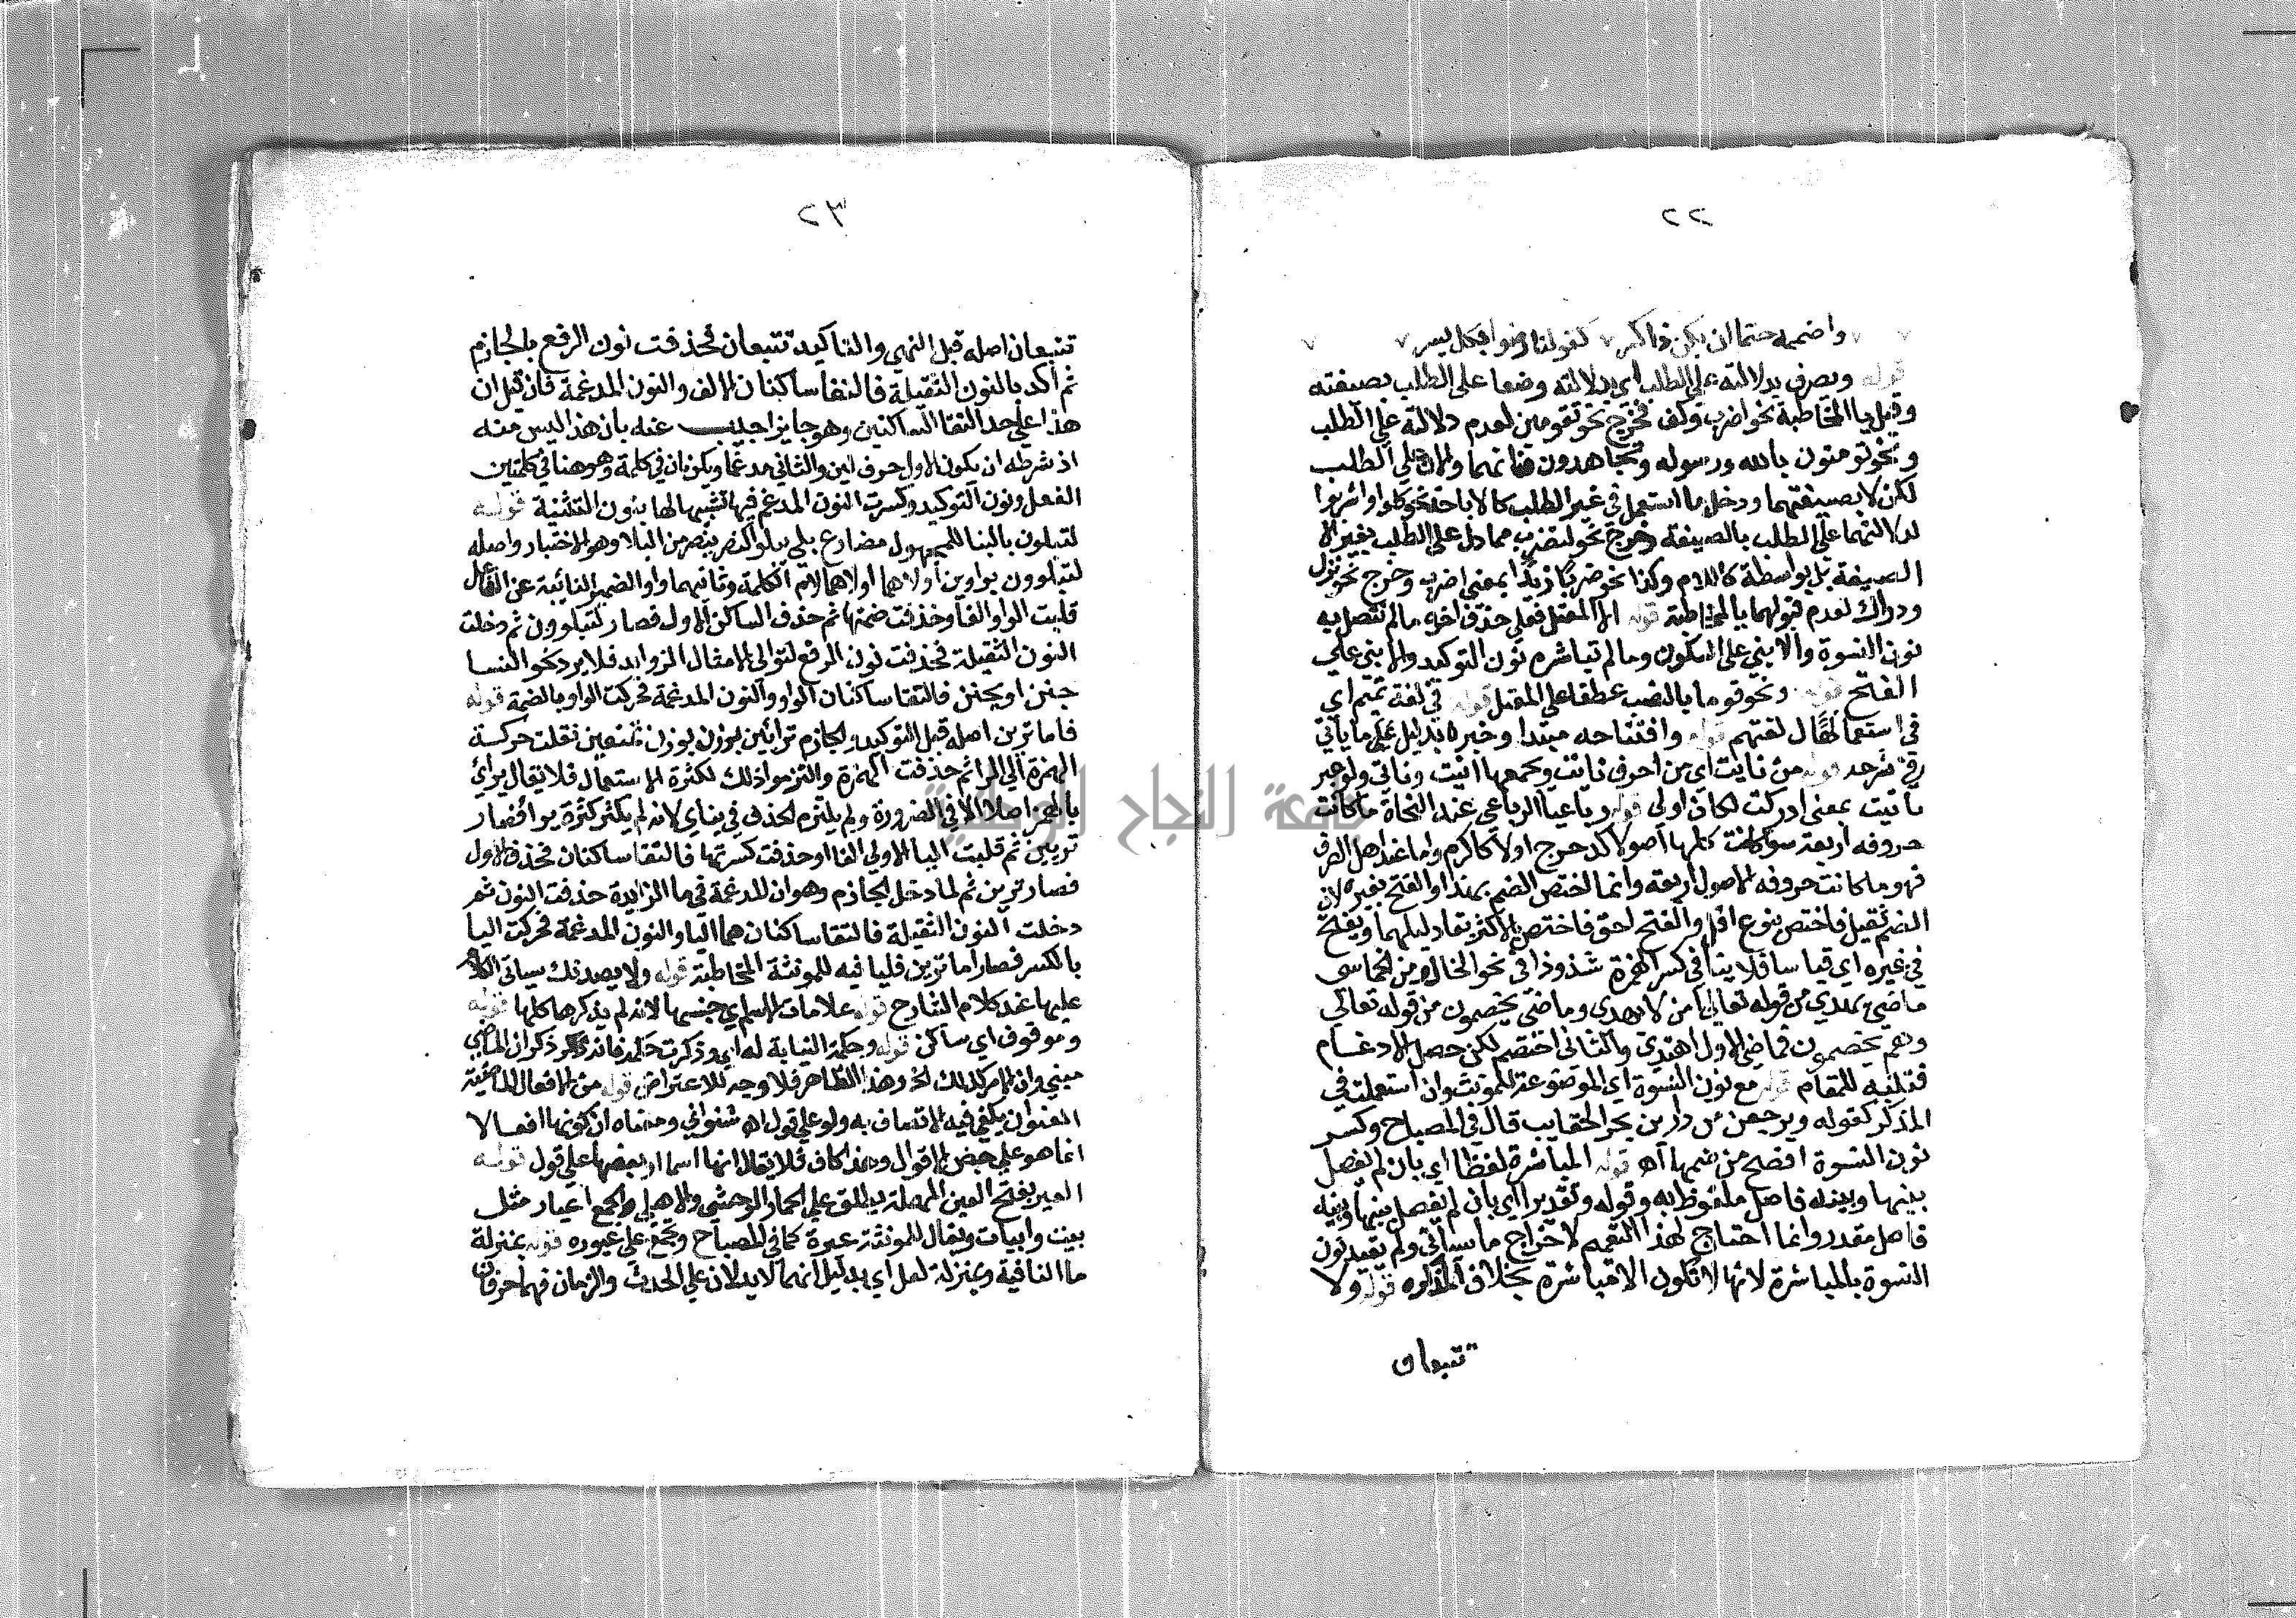 ٢٢
واضممه حتما ان يكن ذا كسر كقولنا رضوا فكل يسر
قوله ويعرف بدلالته على الطلب اي بدلالته وضعا على الطلب بصيغته
وقبل يا المخاطبة نحو اضرب وكف فخرج نحو تقومين لعدم دلالته علي الطلب
ونحو تومنون بالله ورسوله وتجاهدون فانهما ولان علي الطلب
لكن لا بصيغتهما ودخل ما استعمل في غير الطلب كالاباحة نحو كلوا واشربوا
لدلالتهما علي الطلب بالصيغة وخرج نحو لتضرب مما دل علي الطلب بغير الا
الصيغة بل بواسطة كاللام وكذا نحو ضربًا زيدًا بمعني اضرب وخرج نحو نزل
ودراك لعدم قبولهما يا المخاطبة قوله الا المعتل فعلي حذف اخره ما لم تتصل به
نون النسوة والا بني على السكون وما لم تباشره نون التوكيد والا بني علي
الفتح قوله ونحو قوما بالنصب عطفا علي المعتل قوله في لغة تميم اي
في استعمال لغتهم قوله وافتتاحه مبتدا وخبره بدليل علي ما ياتي
قوله من نايت اي من احرف نانت ويجمعها انيت وناتي ولو عبر
بأنيت بمعني ادركت لكان اولي قوله رباعيا الرباعي عند النحاة ما كانت
حروفه اربعة سوا كانت كلها اصولا كدحرج اولا كاكرم واما عند اهل الصرف
فهو ما كانت حروفه الاصول اربعة وانما اختص الضم بهذا والفتح بغيره لان
الضم ثقيل فاختص بنوع اقل والفتح لحق فاختص بالاكثر تعادليلهما ويفتح
في غيره اي قياسا فلا ينافي كسر الهمزة شذوذا في نحو اخال ومن الخماسي
ماضي يهدي من قوله تعالي امن لا يهدي وماضي يخصمون من قوله تعالى
وهم يخصمون فماضي الاول اهتدي والثاني اختصم لكن حصل الادغام
فتنبه للمقام قوله مع نون النسوة اي الموضوعة للمونث وان استعملت في
المذكر كقوله ويرجعن من دارين بجر الحقايب قال في المصباح وكسر
نون النسوة افصح من ضمها اه قوله المباشرة لفظا اي بان لم يفصل
بينها وبينه فاصل ملفوظ به وقوله وتقديرا اي بان لم يفصل بينها وبينه
فاصل مقدر وانما احتاج لهذا التعميم لاخراج ما سياتي ولم يقيد نون
النسوة بالمباشرة لانها لا تكون الا مباشرة بخلاف المذكره قوله ولا
تتبعان
٢٣
تتبعان اصله قبل النهي والتاكيد تتبعان فحذفت نون الرفع بالجازم
ثم اكد بالنون الثقيلة فالتقا ساكنان الالف والنون المدغمة فان قيل ان
هذا علي حد التقا الساكنين وهو جايز اجيب عنه بان هذا ليس منه
اذ شرطه ان يكون الاول حرف لين والثاني مدغما ويكونان في كلمة وهو هنا في كلمتين
الفعل ونون التوكيد وكسرت النون المدغم فيها تشبيها لها بنون التثنية قوله
لتبلون بالبنا للمجهول مضارع بلي يبلو كنصر ينصر من البلا وهو الاختبار واصله
لتبلوون بواوين اولاهما اولاهما لام الكلمة وثانيهما واو الضمير النائبة عن الفاعل
قلبت الواو الفا وحذفت ضمتها ثم حذف الساكن الاول فصار لتبلوون ثم دخلت
النون الثقيلة فحذفت نون الرفع لتوالي الامثال الزوايد فلا يرد نحو النسا
جنن او يجنن فالتقا ساكنان الواو والنون المدغمة فحركت الواو بالضمة قوله
فاما ترين اصله قبل التوكيد والجازم ترأيين بوزن تمنعين نقلت حركة
الهمزة الي الرا ثم حذفت الهمزة والتزموا ذلك لكثرة الاستعمال فلا يقال يرأي
بالهمز اصلا الا في الضرورة ولم يلتزم الحذف في يناي لانه لم يكثر كثرة يرا فصار
تريين ثم قلبت اليا الاولي الفا او حذفت كسرتها فالتقا ساكنان فحذف الاول
فصار ترين ثم لما دخل الجازم وهو ان المدغمة في ما الزايدة حذفت النون ثم
دخلت النون الثقيلة فالتقا ساكنان هما اليا والنون المدغمة فحركت اليا
بالكسر فصار اما ترين فليا فيه للمونثة المخاطبة قوله ولا يصدنك سياتي الكلام
عليها عند كلام الشارح قوله علامات الاسم اي جنسها لانه لم يذكرها كلها قوله
وموقوف اي ساكن قوله وحكمة النيابة له اي وذكرت حكمه فانه ذكر ان الماضي
مبني وان الامر كذلك الخ وهذا الظاهر فلا وجه للاعتراض قوله من الافعال الماضية
العنوان يكفي فيه الاتصاف به ولو علي قول اه شنواني ومعناه ان كونها افعالا
انما هو علي بعض الاقوال وهذا كاف فلا يقال انها اسما او بعضها علي قول قوله
العير بفتح العين المهملة يطلق علي الحمار الوحشي والاهلي والجمع اعيار مثل
بيت وابيات ويقال للمونثة عيرة كما في المصباح ويجمع علي عيوره قوله بمنزلة
ما النافية وبمنزلة لعل اي بدليل انهما لا يدلان علي الحدث والزمان فهما حرفان
جامعة النجاح الوطنية